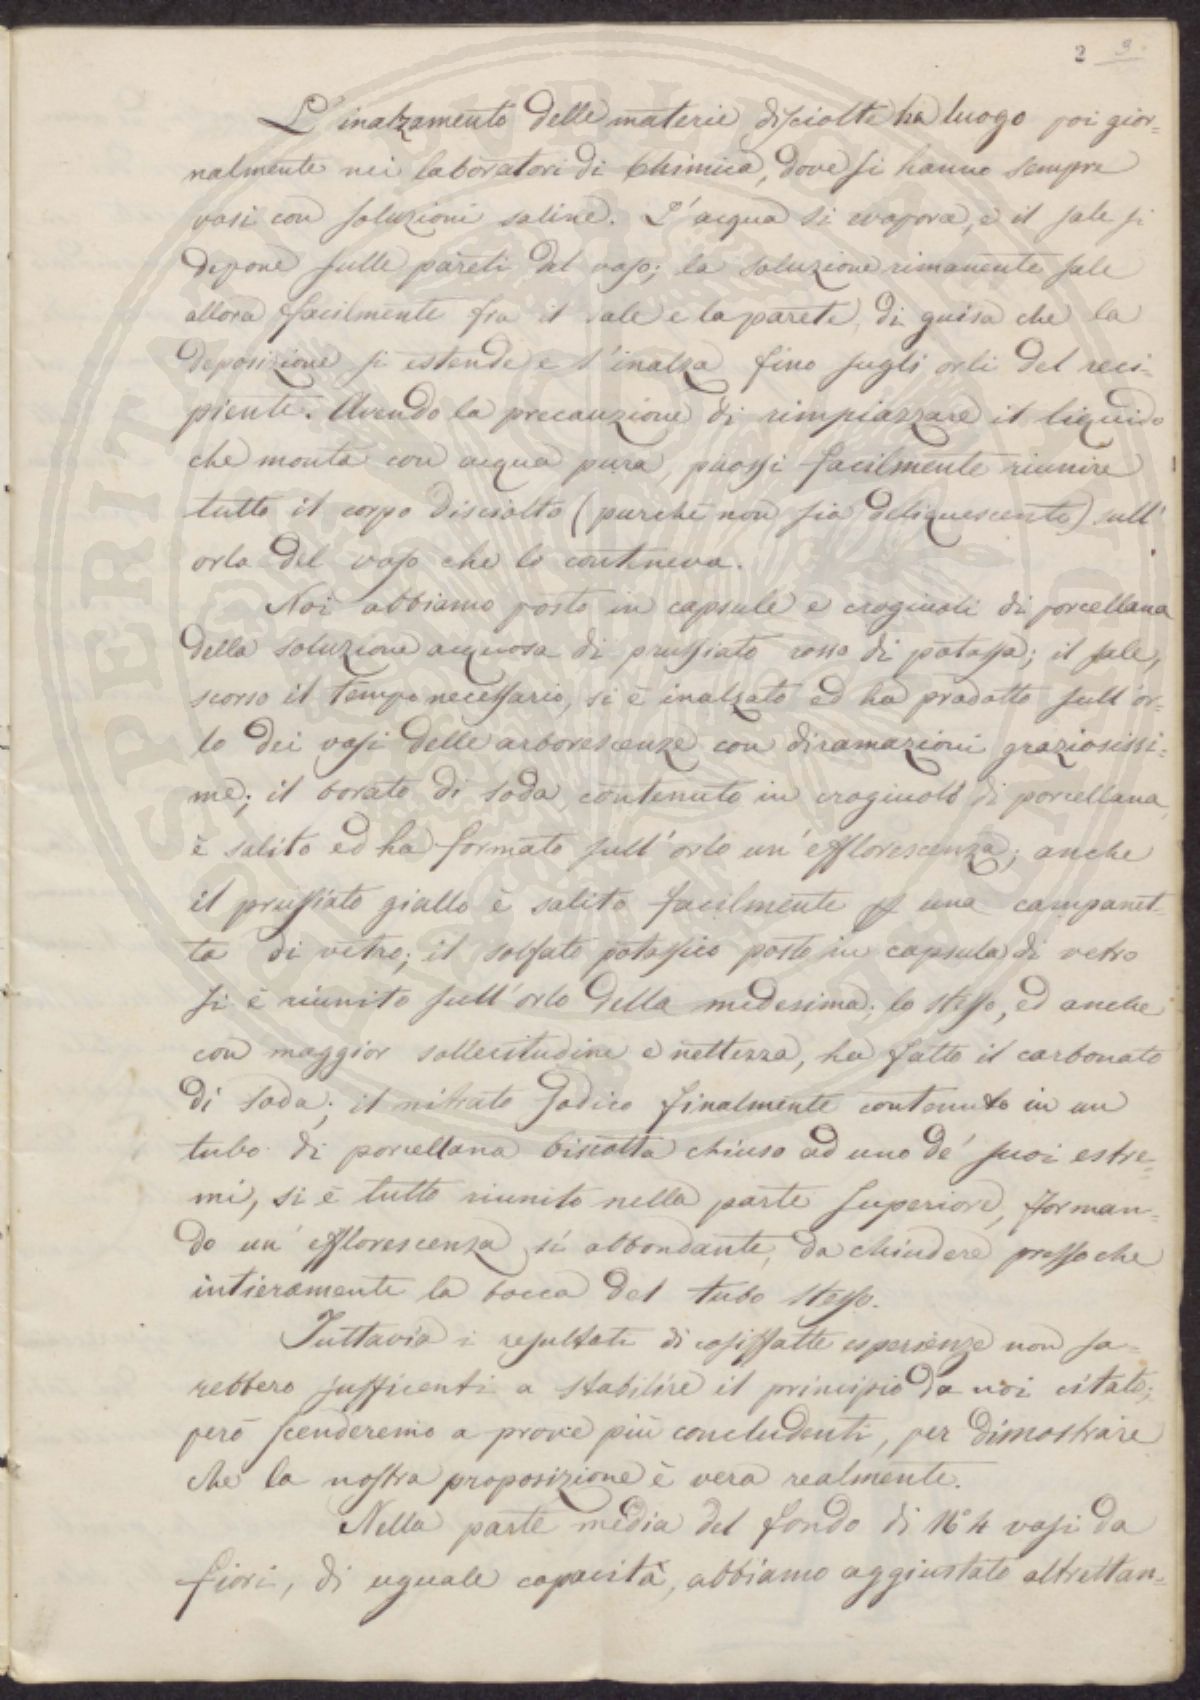 2 3.
L'inalzamento delle materie disciolte ha luogo poi gior=
nalmente nei laboratori di Chimica, dove si hanno sempre
vasi con soluzioni saline. L'acqua si evapora, e il sale si
depone sulle pareti del vaso; la soluzione rimanente sale
allora facilmente fra il sale e la parete, di guisa che la
deposizione si estende e s'inalza fino sugli orli del reci-
piente. Avendo la precauzione di rimpiazzare il liquido
che monta con acqua pura, puossi facilmente riunire
tutto il corpo disciolto (purchè non sia deliquescente) sull'
orlo del vaso che lo conteneva.
Noi abbiamo posto in capsule e crogiuoli di porcellana
della soluzione acquosa di prussiato rosso di potassa; il sale,
scorso il tempo necessario, si è inalzato ed ha prodotto sull'or-
lo dei vasi delle arborescenze con diramazioni graziosissi-
me; il borato di soda contenuto in crogiuolo di porcellana,
è salito ed ha formato sull'orlo un'efflorescenza; anche
il prussiato giallo è salito facilmente una campanet-
ta di vetro; il solfato potassico posto in capsula di vetro
si è riunito sull'orlo della medesima; lo stesso, ed anche
con maggior sollecitudine e nettezza, ha fatto il carbonato
di soda; il nitrato sodico finalmente contenuto in un
tubo di porcellana biscotta chiuso ad uno de' suoi estre=
mi, si è tutto riunito nella parte superiore, forman=
do un'efflorescenza sì abbondante, da chiudere pressochè
intieramente la bocca del tubo stesso.
Tuttavia i resultati di cosiffatte esperienze non sa=
rebbero sufficenti a stabilire il principio da noi citato;
però scenderemo a prove più concludenti, per dimostrare
che la nostra proposizione è vera realmente.
Nella parte media del fondo di N° 4 vasi da
fiori, di uguale capacità, abbiamo aggiustato altrettan=